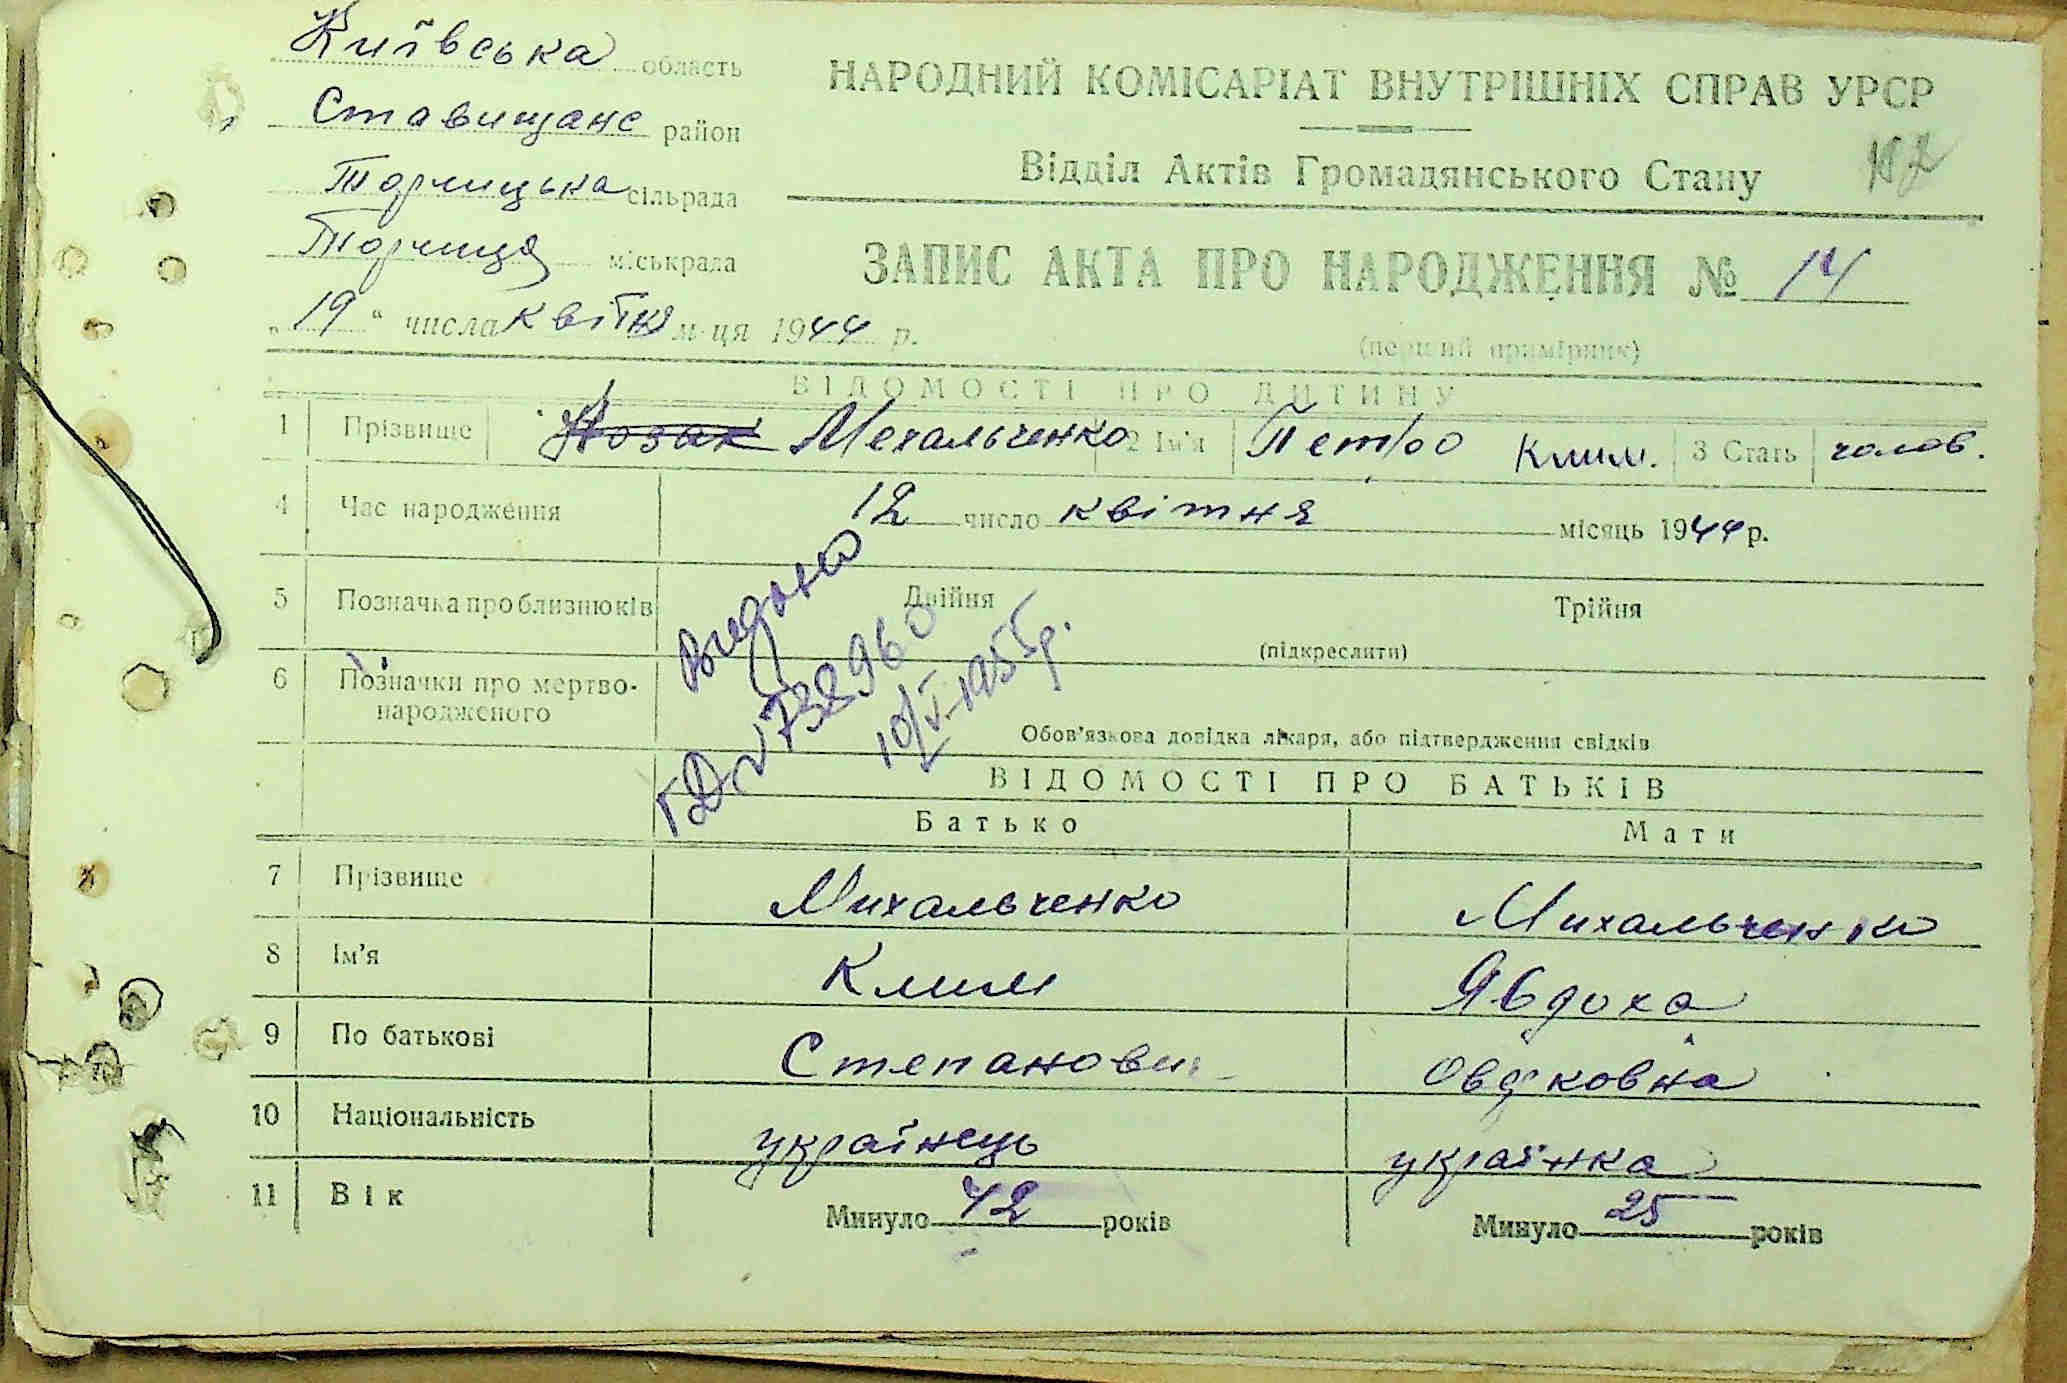 Київська область
Ставищанс район
Торчицька сільрада
Торчиця міськрада
„19“ числа квітня м-ця 1944 р.
НАРОДНИЙ КОМІСАРІАТ ВНУТРІШНІХ СПРАВ УРСР
Відділ Актів Громадянського Стану
ЗАПИС АКТА ПРО НАРОДЖЕННЯ № 14
(перший примірник)
ВІДОМОСТІ ПРО ДИТИНУ
1 Прізвище Козак Мехальченко 2 Ім'я Петро Клим. 3 Стать чолов.
4 Час народження 12 число квітня місяць 1944 р.
5 Позначка про близнюків Двійня Трійня
(підкреслити)
6 Позначки про мертво-
народженого
Обов'язкова довідка лікаря, або підтвердження свідків
Видано
738960
10/V-1955р.
ВІДОМОСТІ ПРО БАТЬКІВ
Батько Мати
7 Прізвище Михальченко Михальченко
8 Ім'я Клим Явдоха
9 По батькові Степанович Овдковна
10 Національність українець українка
11 Вік Минуло 42 років Минуло 25 років